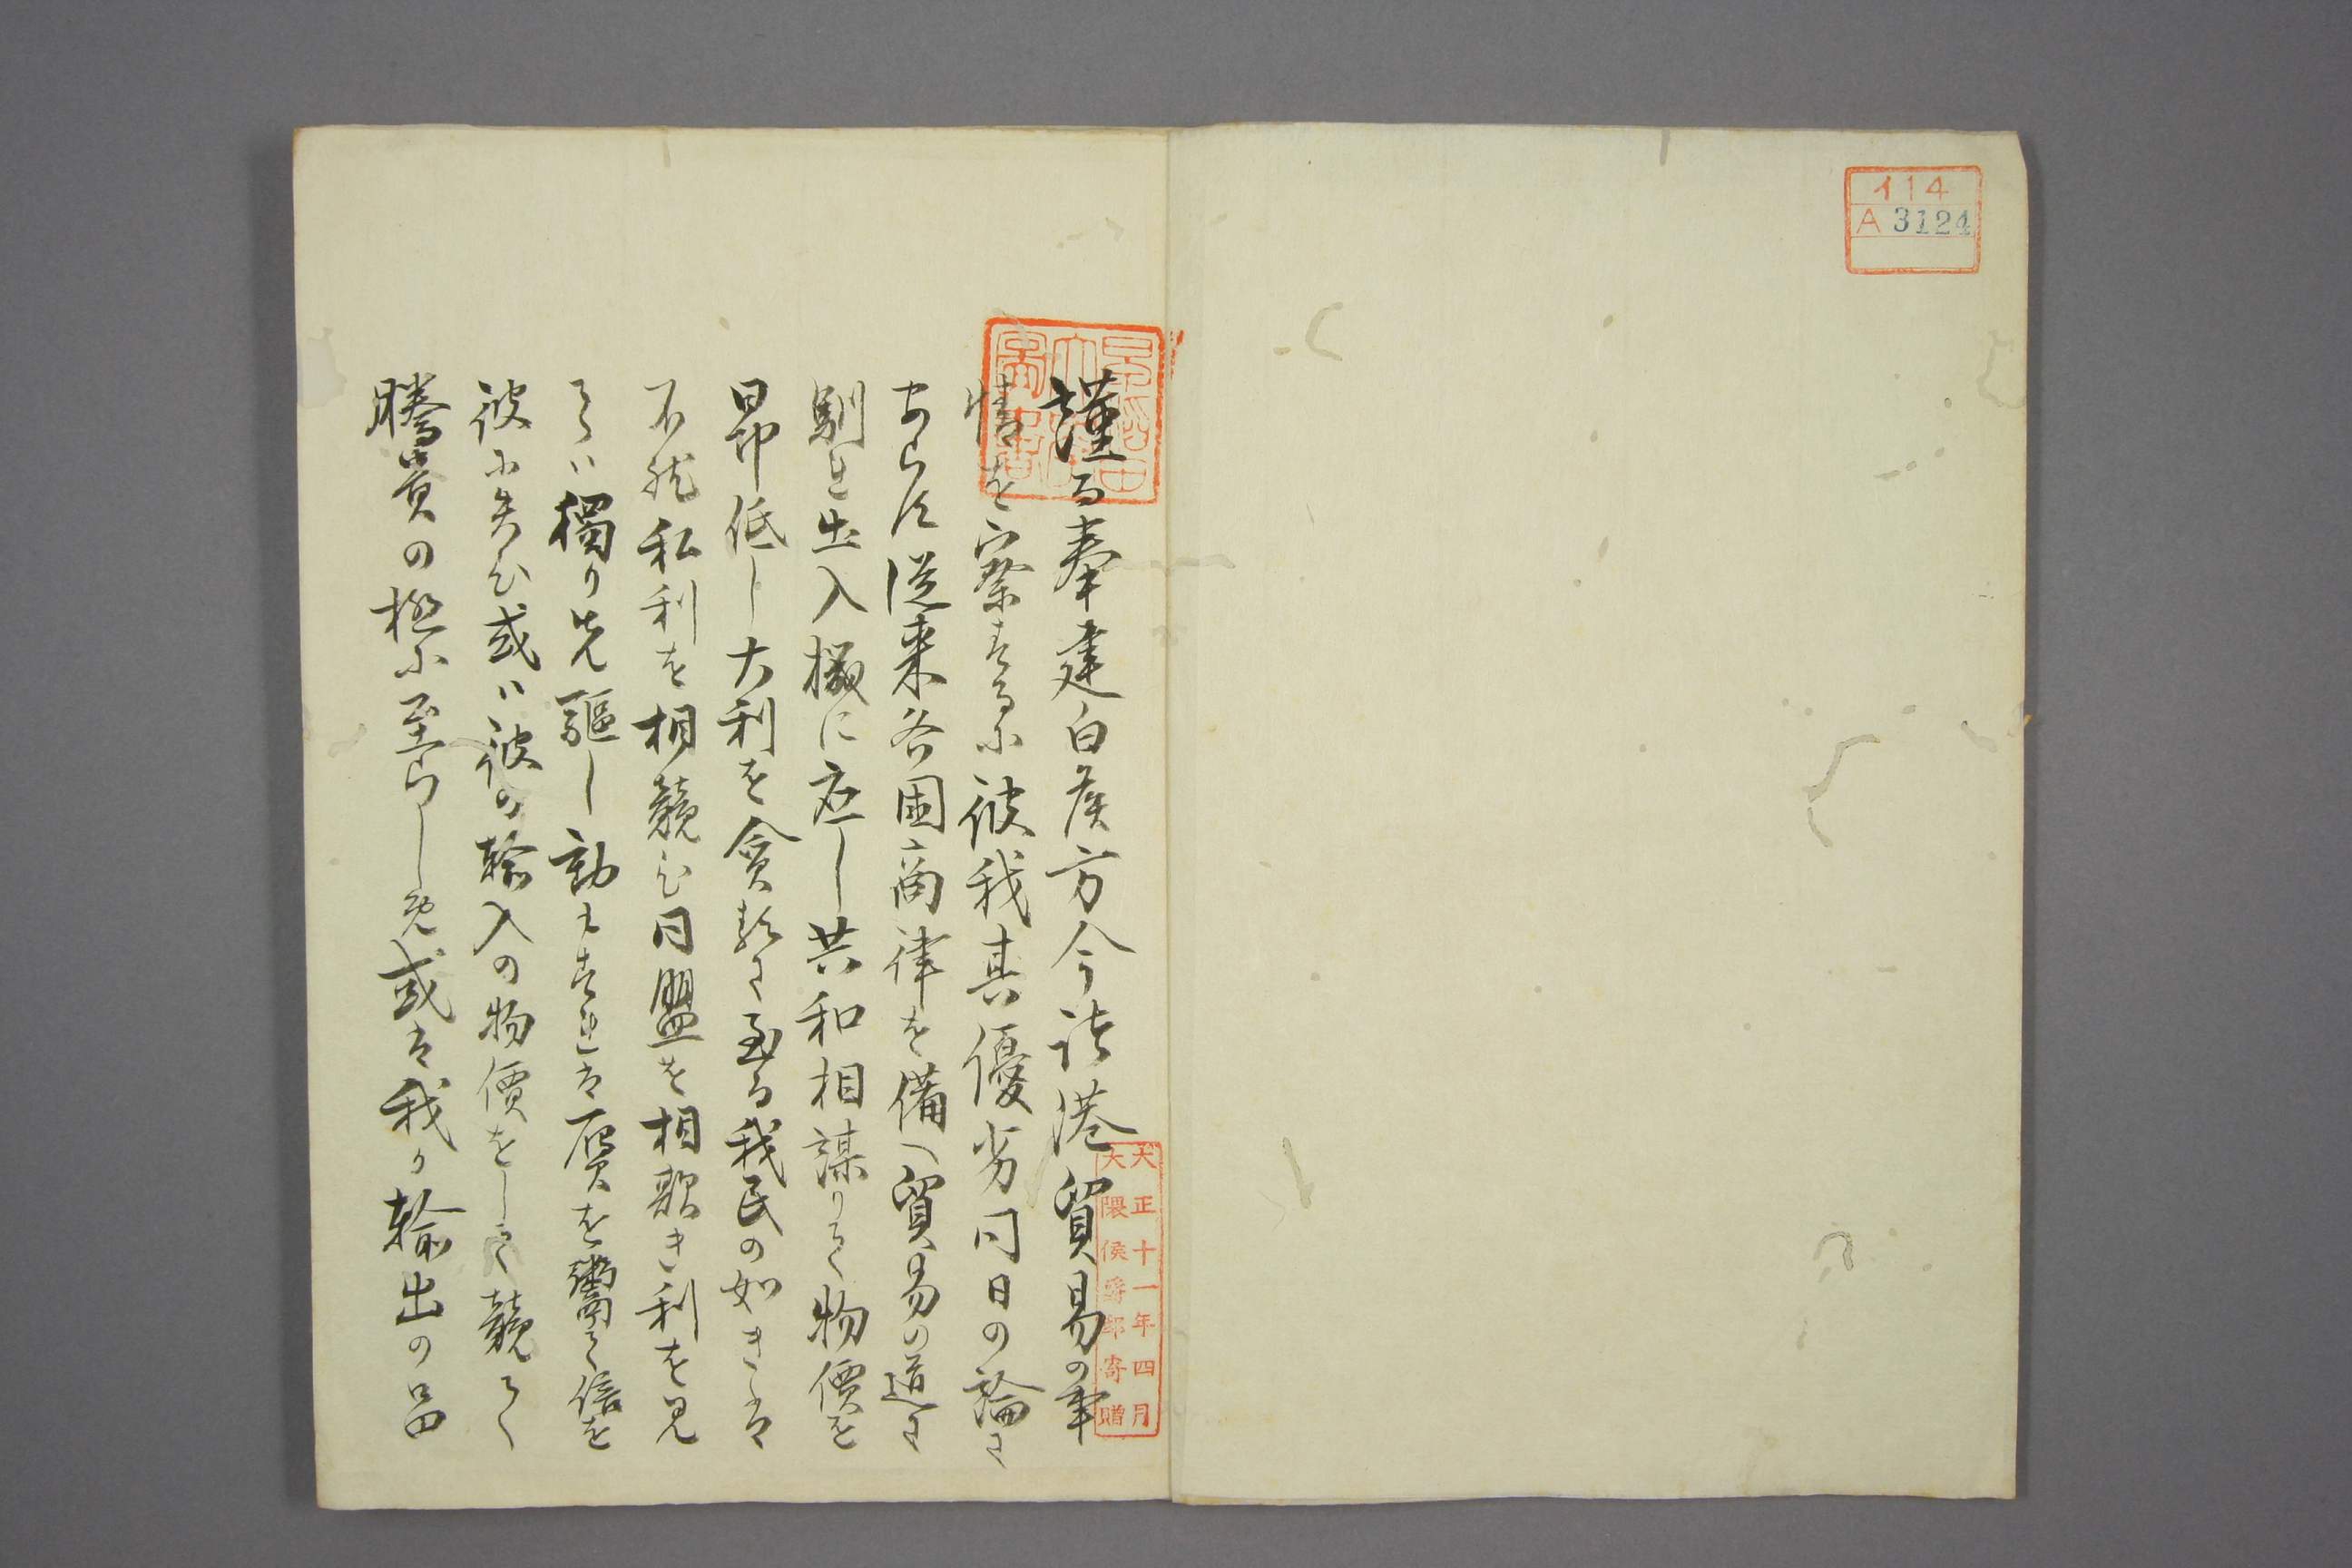 イ14
A 3124
早稲田大学図書
大正十一年四月
大隈侯爵邸寄贈
謹而奉建白候方今諸港貿易の事
情を察するに彼我其優劣同日の論に
あらす従来各国商律を備へ貿易の道に
馴れ出入機に応し共和相謀りて物價を
昂低し大利を貪るに至る我民の如きは
不然私利を相競ひ同盟を相欺き利を見
ては獨り先驅し動もすれは贋を鬻て信を
彼に失ひ或ハ彼の輸入の物價をして競て
騰貴の極に至らしめ或は我か輸出の品